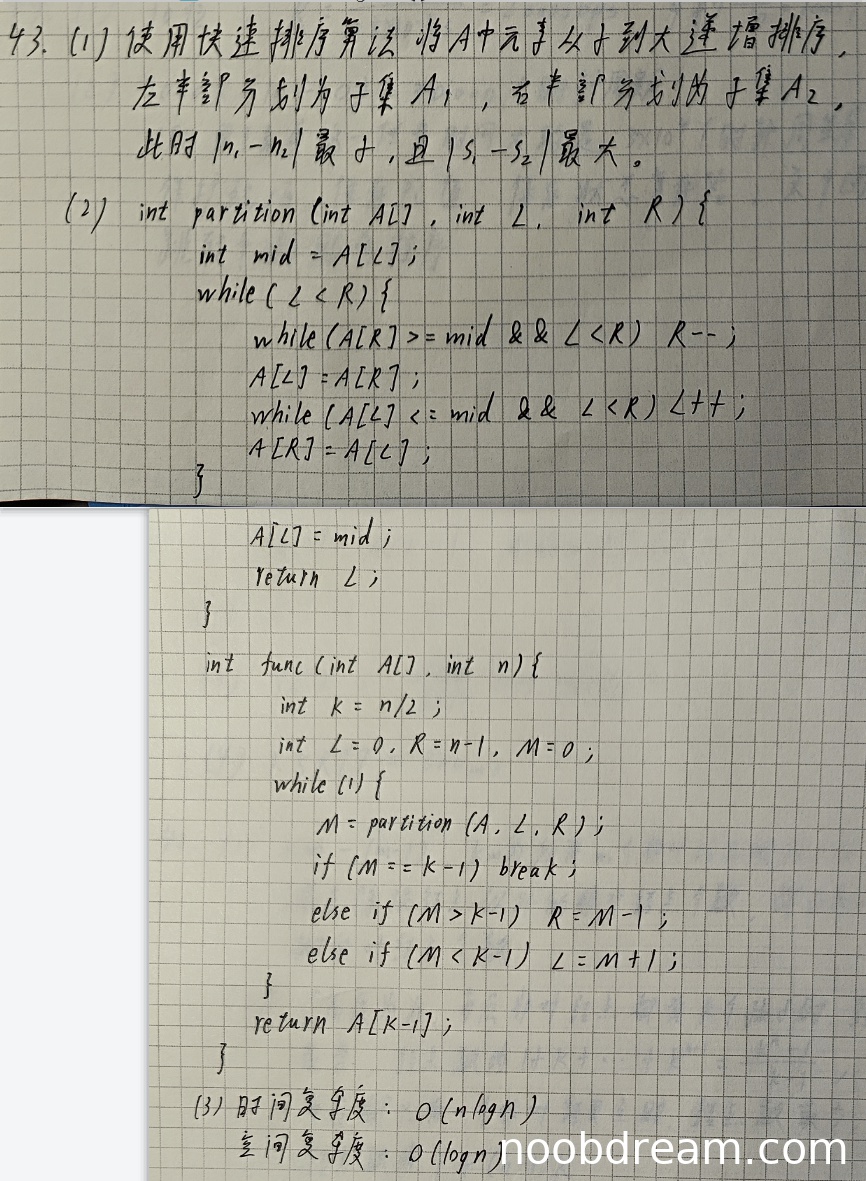 43. (1) 使用快速排序算法将A中元素从小到大递增排序,
左半部分划为子集A1,右半部分划为子集A2,
此时|n1-n2|最小,且|s1-s2|最大。
(2) int partition (int A[], int L, int R) {
int mid = A[L];
while (L < R) {
while (A[R] >= mid && L < R) R--;
A[L] = A[R];
while (A[L] <= mid && L < R) L++;
A[R] = A[L];
}
A[L] = mid;
return L;
}
int func (int A[], int n) {
int k = n/2;
int L = 0, R = n-1, M = 0;
while (1) {
M = partition (A, L, R);
if (M == k-1) break;
else if (M > k-1) R = M-1;
else if (M < k-1) L = M+1;
}
return A[k-1];
}
(3) 时间复杂度: O(nlogn)
空间复杂度: O(logn)
noobdream.com